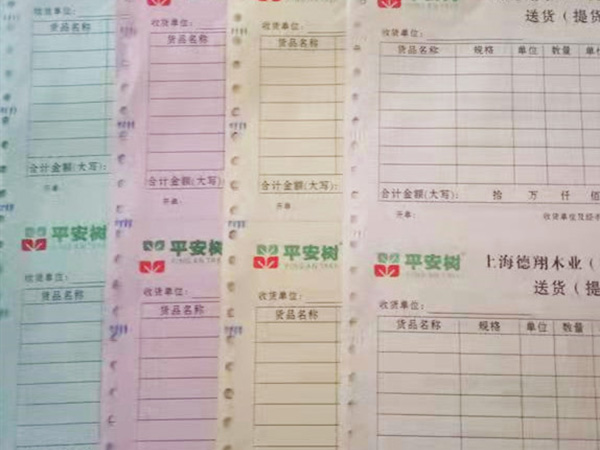 收货单位:
货品名称
合计金额(大写):
开单:
平安树
收货单位:
货品名称
收货单位:
货品名称
合计金额(大写):
开单:
平安树
收货单位:
货品名称
收货单位:
货品名称
合计金额(大写):
开单:
平安树
收货单位:
货品名称
送货(提货
收货单位:
货品名称 规格 单位 数量 单
合计金额(大写): 拾 万 仟 佰
开单: 收货单位及经手
平安树 上海德翔木业(
送货(提
收货单位:
货品名称 规格 单位 数量